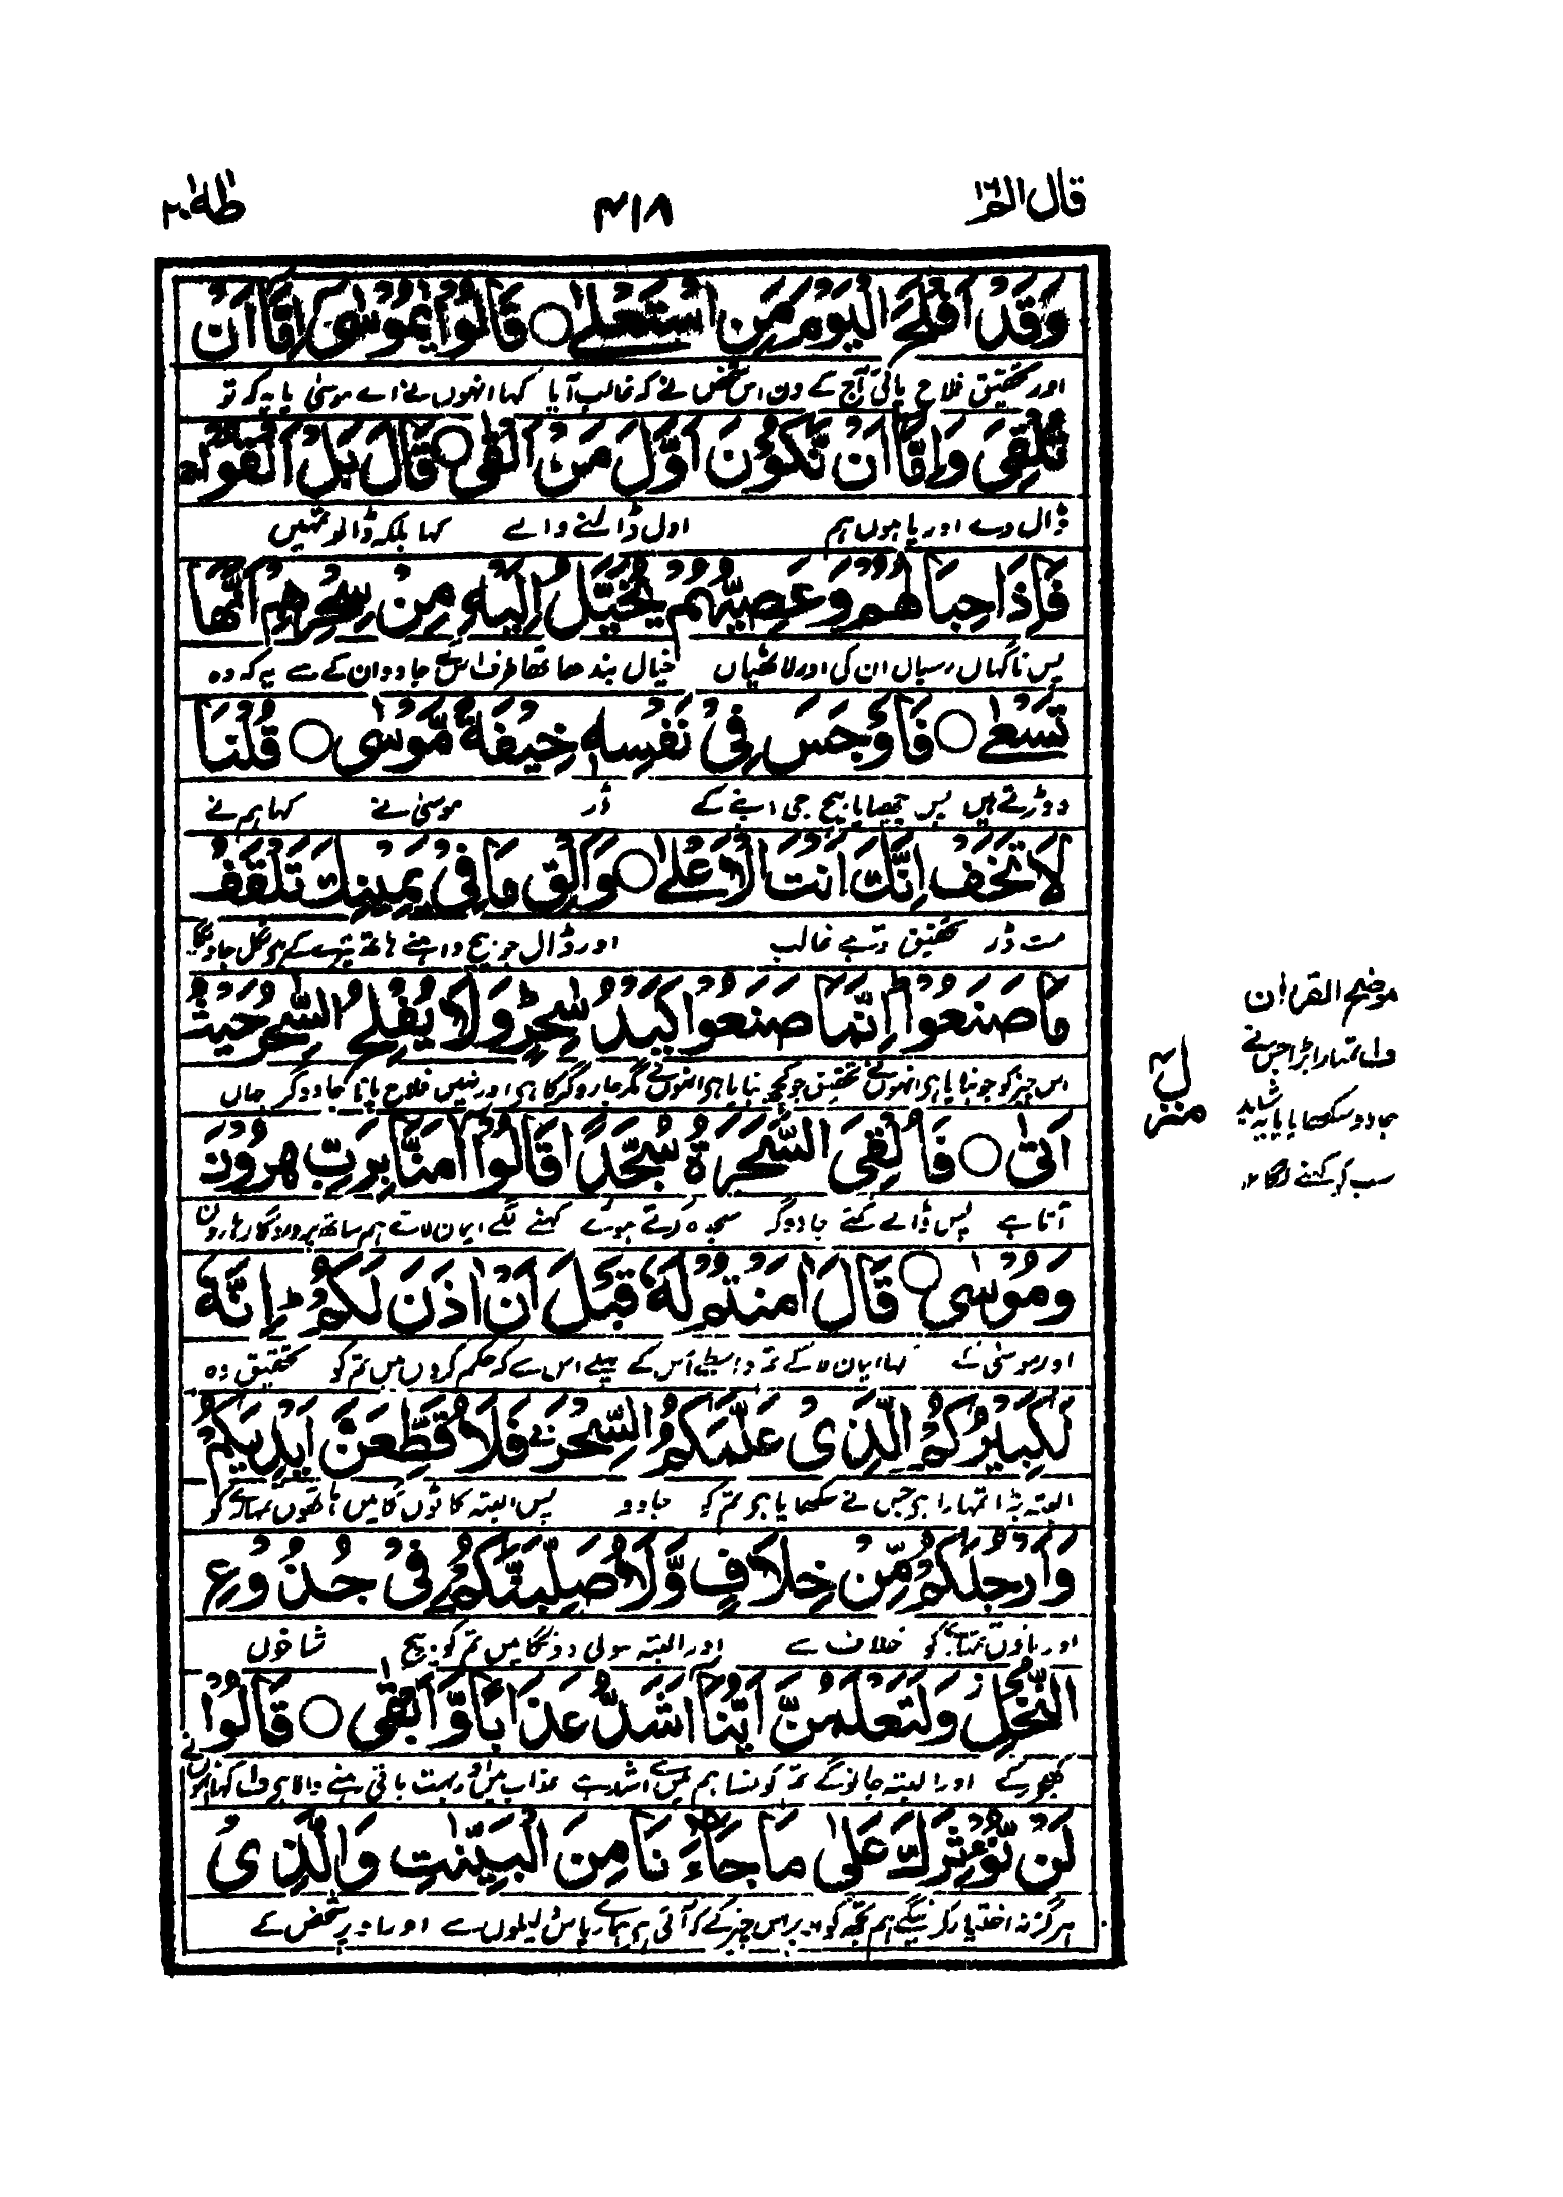 قال الم ١٦
٤١٨
طٰهٰ ٢٠
وَقَدْ اَفْلَحَ الْيَوْمَ مَنِ اسْتَعْلٰى ○ قَالُوْا يٰمُوْسٰٓى اِمَّآ اَنْ
اور تحقیق فلاح پائی آج کے دن اس شخص نے کہ غالب آیا کہا انہوں نے اے موسیٰ یا یہ کہ تو
تُلْقِيَ وَاِمَّآ اَنْ نَّكُوْنَ اَوَّلَ مَنْ اَلْقٰى ○ قَالَ بَلْ اَلْقُوْا ۚ
ڈال دے اور یا ہوں ہم اول ڈالنے والے کہا بلکہ ڈالو تمہیں
فَاِذَا حِبَالُهُمْ وَعِصِيُّهُمْ يُخَيَّلُ اِلَيْهِ مِنْ سِحْرِهِمْ اَنَّهَا
پس ناگہاں رسیاں ان کی اور لاٹھیاں خیال بندھا تھا طرف اس کے جادو ان کے سے یہ کہ وہ
تَسْعٰى ○ فَاَوْجَسَ فِيْ نَفْسِهٖ خِيْفَةً مُّوْسٰى ○ قُلْنَا
دوڑتے ہیں پس چھپایا بیچ جی اپنے کے ڈر موسیٰ نے کہا ہم نے
لَا تَخَفْ اِنَّكَ اَنْتَ الْاَعْلٰى ○ وَاَلْقِ مَا فِيْ يَمِيْنِكَ تَلْقَفْ
مت ڈر تحقیق تو ہے غالب اور ڈال جو بیچ داہنے ہاتھ تیرے کے ہے نگل جاویگا
مَا صَنَعُوْا ۭ اِنَّمَا صَنَعُوْا كَيْدُ سٰحِرٍ ۭ وَلَا يُفْلِحُ السّٰحِرُ حَيْثُ
اس چیز کو جو بنایا ہے انہوں نے تحقیق جو کچھ بنایا ہے انہوں نے مکر جادوگر کا ہے اور نہیں فلاح پاتا جادوگر جہاں
اَتٰى ○ فَاُلْقِيَ السَّحَرَةُ سُجَّدًا قَالُوْٓا اٰمَنَّا بِرَبِّ هٰرُوْنَ
آتا ہے پس ڈالے گئے جادوگر سجدہ کرتے ہوئے کہنے لگے ایمان لائے ہم ساتھ پروردگار ہارون
وَمُوْسٰى ○ قَالَ اٰمَنْتُمْ لَهٗ قَبْلَ اَنْ اٰذَنَ لَكُمْ ۭ اِنَّهٗ
اور موسیٰ کے کہا ایمان لائے تم واسطے اس کے پہلے اس سے کہ حکم کروں میں تم کو تحقیق وہ
لَكَبِيْرُكُمُ الَّذِيْ عَلَّمَكُمُ السِّحْرَ ۚ فَلَاُقَطِّعَنَّ اَيْدِيَكُمْ
البتہ بڑا تمہارا ہے جس نے سکھایا ہے تم کو جادو پس البتہ کاٹوں گا میں ہاتھوں تمہارے کو
وَاَرْجُلَكُمْ مِّنْ خِلَافٍ وَّلَاُصَلِّبَنَّكُمْ فِيْ جُذُوْعِ
اور پاؤں تمہارے کو خلاف سے اور البتہ سولی دونگا میں تم کو بیچ شاخوں
النَّخْلِ ۡ وَلَتَعْلَمُنَّ اَيُّنَآ اَشَدُّ عَذَابًا وَّاَبْقٰى ○ قَالُوْا
کھجور کے اور البتہ جانو گے تم کونسا ہم میں سے اشد ہے عذاب میں اور بہت باقی رہنے والا ہے ف۱ کہا انہوں نے
لَنْ نُّؤْثِرَكَ عَلٰى مَا جَاۗءَنَا مِنَ الْبَيِّنٰتِ وَالَّذِيْ
ہرگز نہ اختیار کرینگے ہم تجھ کو اوپر اس چیز کے کہ آئی ہے ہمارے پاس دلیلوں سے اور اوپر اس شخص کے
منزل ٤
موضح القرآن
ف۱ تمہارا بڑا جس نے
جادو سکھایا یا یہ شاید
سب کو کہنے لگا ۱۲